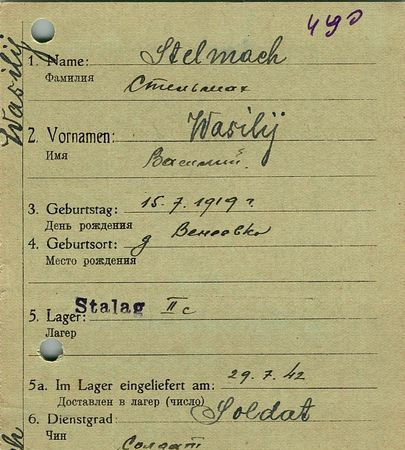 490
Wasilij
1. Name: Stelmach
Фамилия Стельмах
2. Vornamen: Wasilij
Имя Василий
3. Geburtstag: 15. 7. 1919 г
День рождения
4. Geburtsort: д
Место рождения
5. Lager: Stalag II c
Лагер
5a. Im Lager eingeliefert am: 29. 7. 42
Доставлен в лагер (число)
6. Dienstgrad: Soldat
Чин Солдат